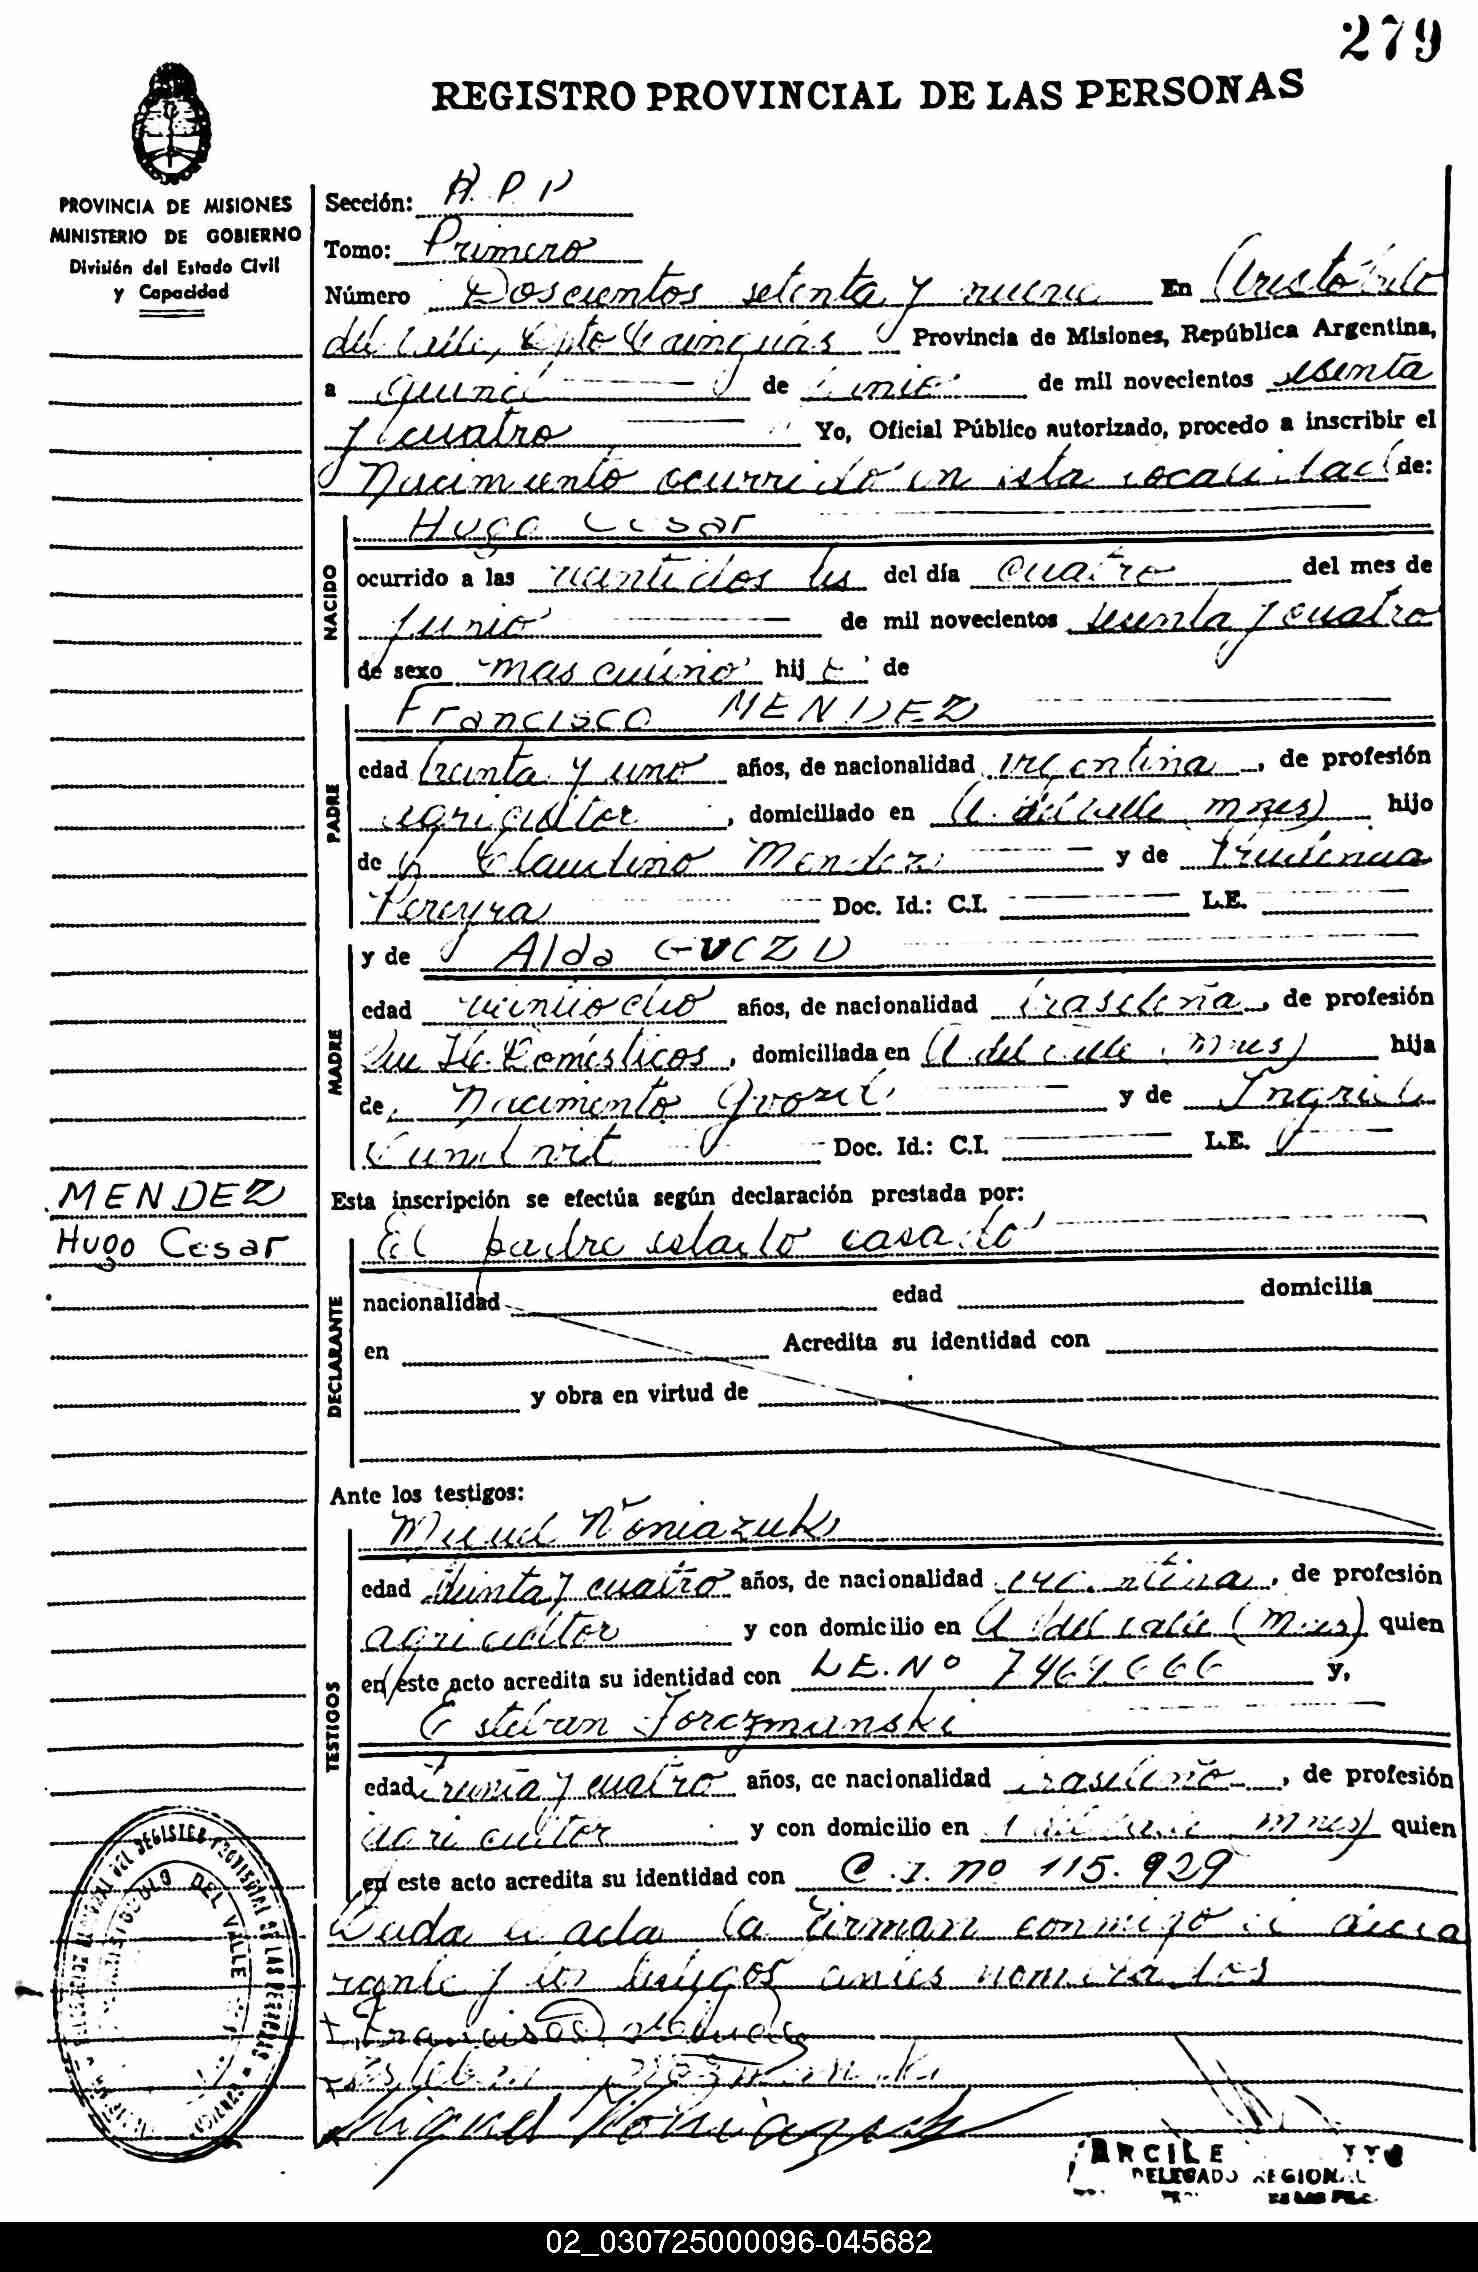 279
REGISTRO PROVINCIAL DE LAS PERSONAS
PROVINCIA DE MISIONES
MINISTERIO DE GOBIERNO
División del Estado Civil
y Capacidad
Sección: A. P. P
Tomo: Primero
Número Doscientos setenta y nueve En Aristóbulo
del Valle, Dpto Cainguás Provincia de Misiones, República Argentina,
a quince de Junio de mil novecientos sesenta
y cuatro Yo, Oficial Público autorizado, procedo a inscribir el
Nacimiento ocurrido en esta localidad de:
NACIDO
Hugo Cesar
ocurrido a las veintidos hs del día cuatro del mes de
junio de mil novecientos sesenta y cuatro
de sexo masculino hijo de
PADRE
Francisco MENDEZ
edad treinta y uno años, de nacionalidad argentina, de profesión
agricultor, domiciliado en A. del Valle Mnes) hijo
de Claudino Mendez y de Prudencia
Pereyra Doc. Id.: C.I. L.E.
MADRE
y de Alda
edad veintiocho años, de nacionalidad brasileña, de profesión
Que Hc. Domésticos, domiciliada en A del Valle Mnes) hija
de Nacimento y de Ingrid
Doc. Id.: C.I. L.E.
MENDEZ
Hugo Cesar
Esta inscripción se efectúa según declaración prestada por:
DECLARANTE
El padre estado casado
nacionalidad edad domicilia
en Acredita su identidad con
y obra en virtud de
Ante los testigos:
TESTIGOS
Miguel Woniazuk
edad treinta y cuatro años, de nacionalidad argentina, de profesión
agricultor y con domicilio en A del Valle (Mnes) quien
en este acto acredita su identidad con L.E. Nº 7469666 y,
Esteban Forczmanski
edad treinta y cuatro años, de nacionalidad brasileño, de profesión
agricultor y con domicilio en A del Valle Mnes) quien
en este acto acredita su identidad con C.I. nº 115.929
Leida el acta la firman conmigo el decla
rante y los testigos antes nombrados
Francisco Mendez
Esteban
Miguel
ARISTOBULO DEL VALLE
DELEGADO REGIONAL
02_030725000096-045682